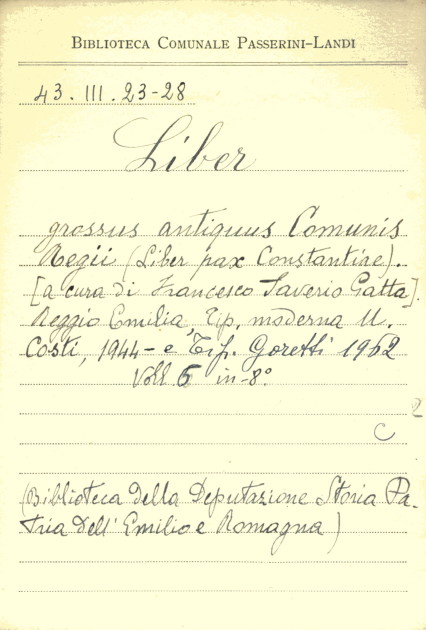 BIBLIOTECA COMUNALE PASSERINI-LANDI
43. III. 23-28
Liber
grossus antiquus Comunis
Regii (Liber pax Constantiae).
[a cura di Francesco Saverio Gatta].
Reggio Emilia, Tip. moderna U.
Costi, 1944 - e Tip. Goretti 1962
Voll. 6 in-8°
C
(Biblioteca della Deputazione Storia Pa-
tria dell' Emilio e Romagna)